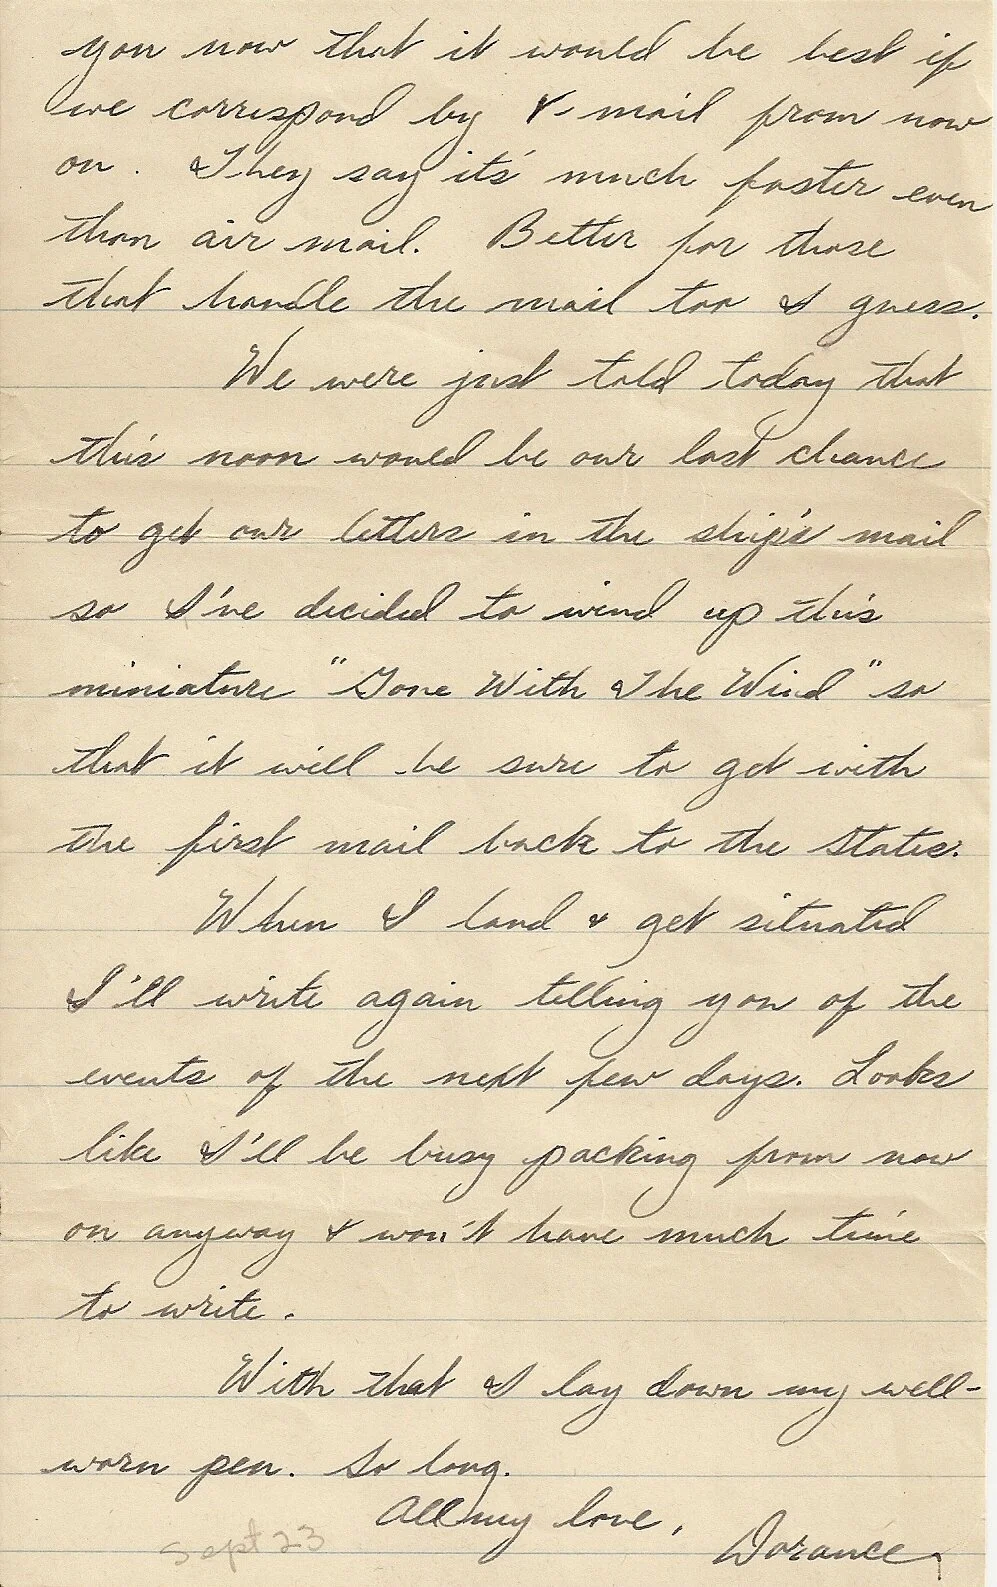 you now that it would be best if
we correspond by V-mail from now
on. They say it's much faster even
than air mail. Better for those
that handle the mail too I guess.
We were just told today that
this noon would be our last chance
to get our letters in the ship's mail
so I've decided to wind up this
miniature "Gone With The Wind" so
that it will be sure to get with
the first mail back to the States.
When I land & get situated
I'll write again telling you of the
events of the next few days. Looks
like I'll be busy packing from now
on anyway & won't have much time
to write.
With that I lay down my well-
worn pen. So long.
All my love,
Dorance
Sept 23